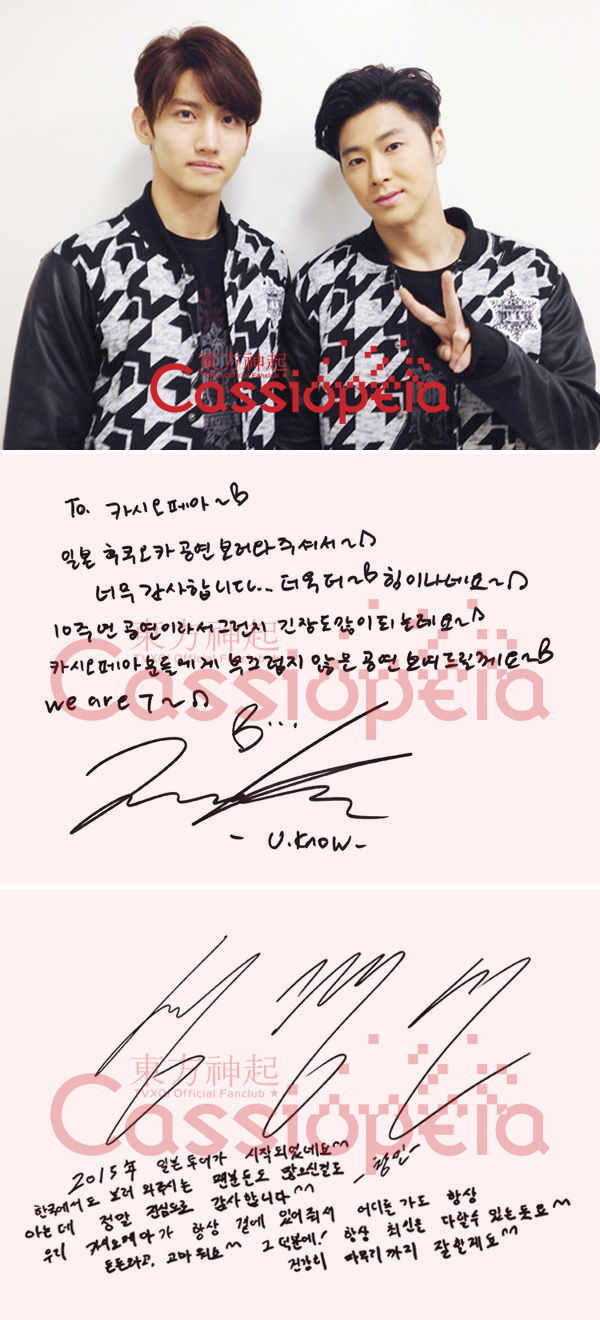 東方神起
TVXQ! Official Fanclub
Cassiopeia
To. 카시오페아~B
일본 후쿠오카 공연 보러와 주셔서~♫
너무 감사합니다... 더욱더~B 힘이나네요~♫
10주년 공연이라서그런지 긴장도많이되는데요~♫
카시오페아분들에게 부끄럽지 않은 공연 보여드릴께요~B
we are T~♫
B...
- U.Know -
東方神起
Cassiopeia
東方神起
TVXQ! Official Fanclub ★
Cassiopeia
2015年 일본 투어가 시작되었네요^^
-창민-
한국에서도 보러 와주시는 팬분들도 많으신걸로
아는데 정말 진심으로 감사합니다^^
우리 카시오페아가 항상 곁에 있어줘서 어디든가도 항상
든든하고, 고마워요^^ 그 덕분에! 항상 최선을 다할수 있는듯요^^
건강히 마무리까지 잘할게요^^